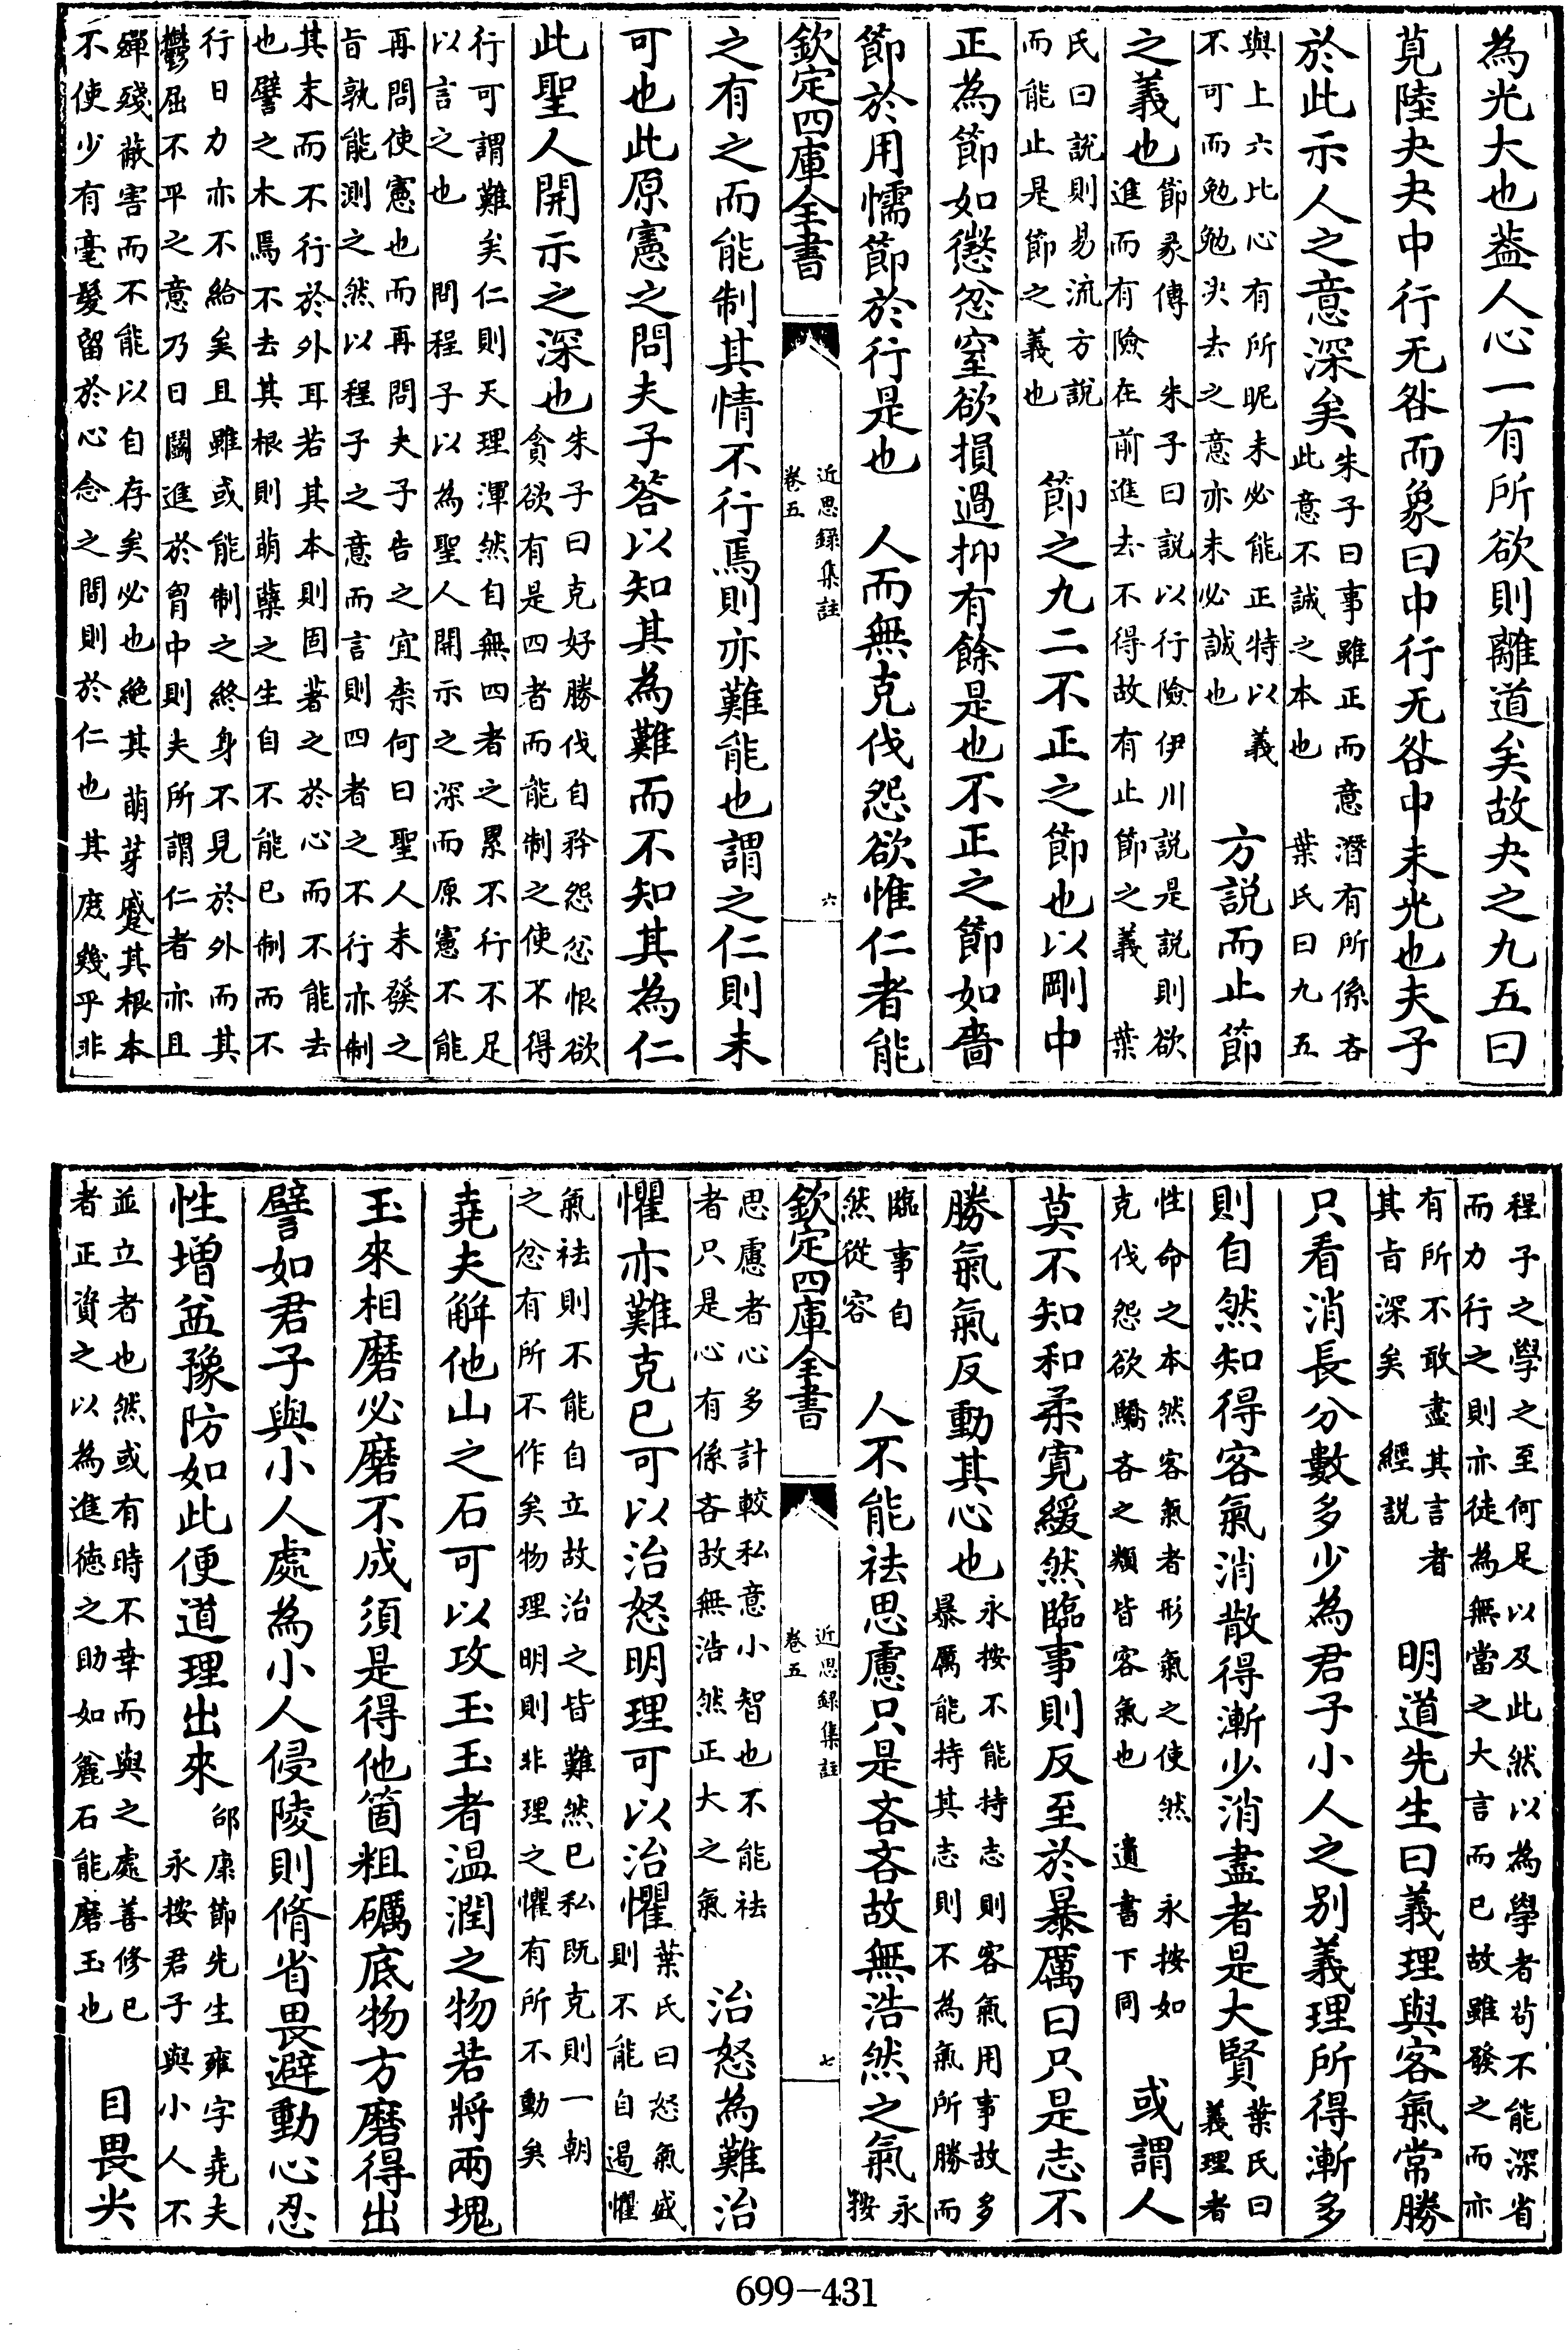 為光大也葢人心一有所欲則離道矣故夬之九五曰
莧陸夬夬中行无咎而象曰中行无咎中未光也夫子
於此示人之意深矣朱子曰事雖正而意潛有所係吝
此意不誠之本也　葉氏曰九五
與上六比心有所昵未必能正特以義
不可而勉勉决去之意亦未必誠也
方說而止節
之義也節彖傳　朱子曰説以行險伊川説是説則欲
進而有險在前進去不得故有止節之義　葉
氏曰説則易流方說
而能止是節之義也
節之九二不正之節也以剛中
正為節如懲忿窒欲損過抑有餘是也不正之節如嗇
節於用懦節於行是也　人而無克伐怨欲惟仁者能
欽定四庫全書　近思録集註　卷五　六
之有之而能制其情不行焉則亦難能也謂之仁則未
可也此原憲之問夫子答以知其為難而不知其為仁
此聖人開示之深也朱子曰克好勝伐自矜怨忿恨欲
貪欲有是四者而能制之使不得
行可謂難矣仁則天理渾然自無四者之累不行不足
以言之也　問程子以為聖人開示之深而原憲不能
再問使憲也而再問夫子告之宜柰何曰聖人未發之
旨孰能測之然以程子之意而言則四者之不行亦制
其末而不行於外耳若其本則固著之於心而不能去
也譬之木焉不去其根則萌蘖之生自不能已制而不
行日力亦不給矣且雖或能制之終身不見於外而其
鬱屈不平之意乃日鬭進於胷中則夫所謂仁者亦且
殫殘蔽害而不能以自存矣必也絶其萌芽蹙其根本
不使少有毫髮留於心念之間則於仁也其庻幾乎非
程子之學之至何足以及此然以為學者茍不能深省
而力行之則亦徒為無當之大言而已故雖發之而亦
有所不敢盡其言者
其旨深矣　經說
明道先生曰義理與客氣常勝
只看消長分數多少為君子小人之别義理所得漸多
則自然知得客氣消散得漸少消盡者是大賢葉氏曰
義理者
性命之本然客氣者形氣之使然　永按如
克伐怨欲驕吝之類皆客氣也　遺書下同
或謂人
莫不知和柔寛緩然臨事則反至於暴厲曰只是志不
勝氣氣反動其心也永按不能持志則客氣用事故多
暴厲能持其志則不為氣所勝而
臨事自
然從容
人不能袪思慮只是吝吝故無浩然之氣永
按
欽定四庫全書　近思録集註　卷五　七
思慮者心多計較私意小智也不能袪
者只是心有係吝故無浩然正大之氣
治怒為難治
懼亦難克已可以治怒明理可以治懼葉氏曰怒氣盛
則不能自遏懼
氣袪則不能自立故治之皆難然已私既克則一朝
之忿有所不作矣物理明則非理之懼有所不動矣
堯夫解他山之石可以攻玉玉者温潤之物若將兩塊
玉來相磨必磨不成須是得他箇粗礪底物方磨得出
譬如君子與小人處為小人侵陵則脩省畏避動心忍
性增益豫防如此便道理出來邵康節先生雍字堯夫
永按君子與小人不
並立者也然或有時不幸而與之處善修已
者正資之以為進德之助如麄石能磨玉也
目畏尖
699-431